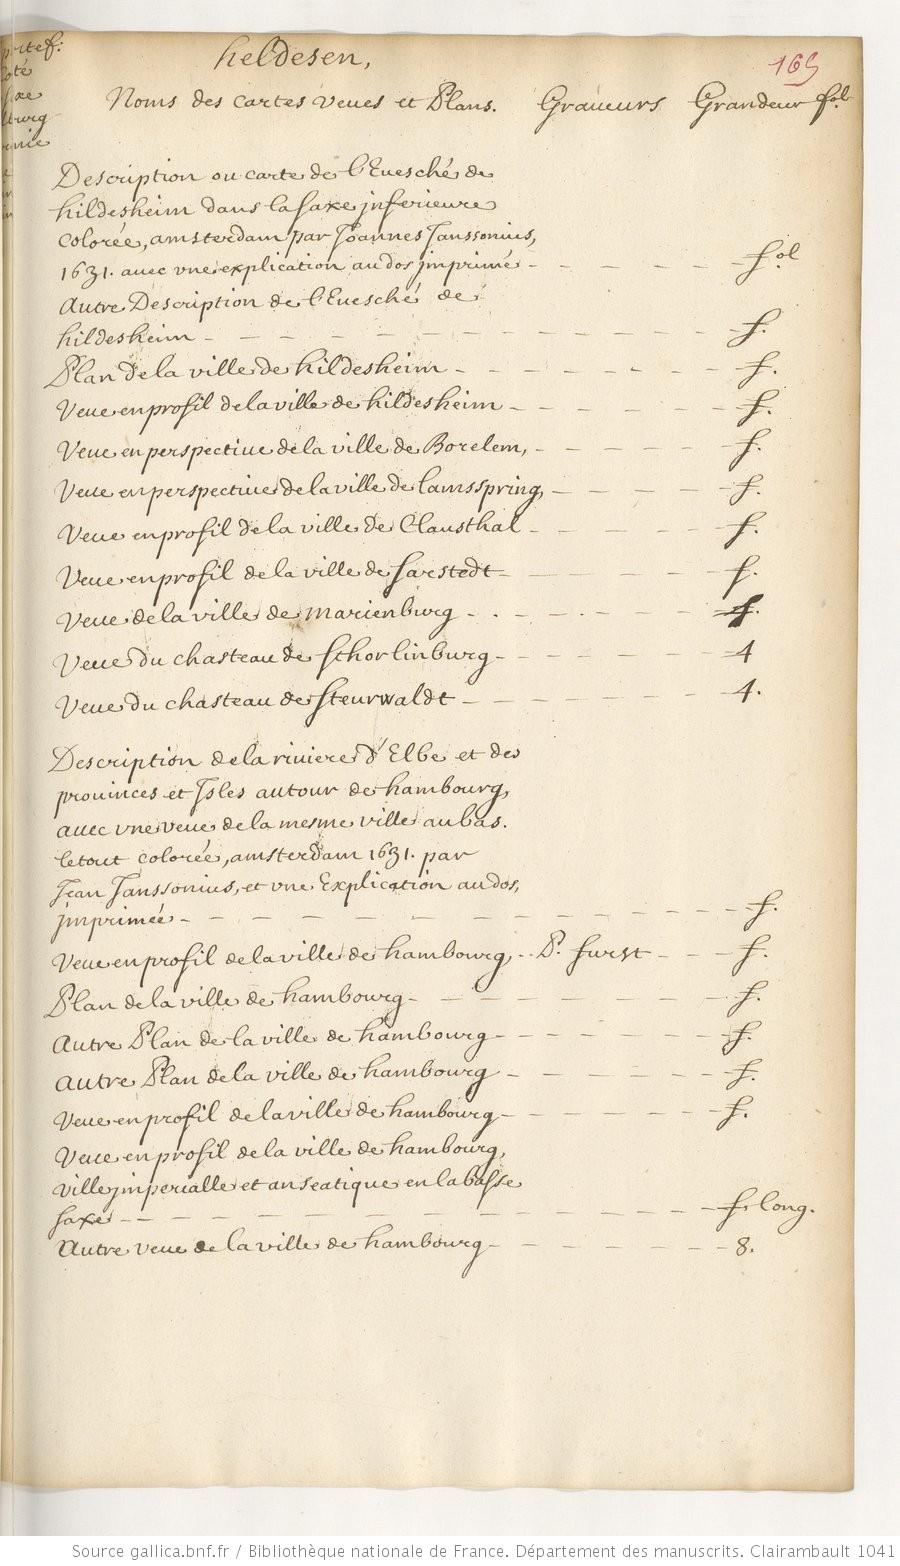 heldesen,
165
Noms des cartes veues et Plans. Graueurs Grandeur fol.
Description ou carte de l'Euesché de
hildesheim dans la saxe jnferieure
colorée, amsterdam par Joannes Janssonius,
1631. auec vne explication au dos jmprimé - - - - - - fol
Autre Description de l'Euesché de
hildesheim - - - - - - - - - - - - - f.
Plan de la ville de hildesheim - - - - - - - f.
Veue en profil de la ville de hildesheim - - - - - - f.
Veue en perspectiue de la ville de Borelem, - - - - - - f.
Veue en perspectiue de la ville de lamsspring, - - - - - f.
Veue en profil de la ville de Clausthal - - - - - - f.
Veue en profil de la ville de sarstedt - - - - - - f.
Veue de la ville de marienburg - - - - - - - 4.
Veue du chasteau de schorlinburg - - - - - - - 4
Veue du chasteau de steurwaldt - - - - - - - 4.
Description de la riuiere d'Elbe et des
prouinces et Jsles autour de hambourg,
auec vne veue de la mesme ville au bas.
le tout colorée, amsterdam 1631. par
Jean Janssonius, et vne Explication au dos,
jmprimée - - - - - - - - - - - - - f.
Veue en profil de la ville de hambourg, - - P. furst - - - f.
Plan de la ville de hambourg - - - - - - - - f.
Autre Plan de la ville de hambourg - - - - - - - f.
autre Plan de la ville de hambourg - - - - - - - f.
Veue en profil de la ville de hambourg - - - - - - - f.
Veue en profil de la ville de hambourg,
ville jmperialle et anseatique en la basse
saxe - - - - - - - - - - - - - - f. long.
Autre veue de la ville de hambourg - - - - - - - 8.
Source gallica.bnf.fr / Bibliothèque nationale de France. Département des manuscrits. Clairambault 1041